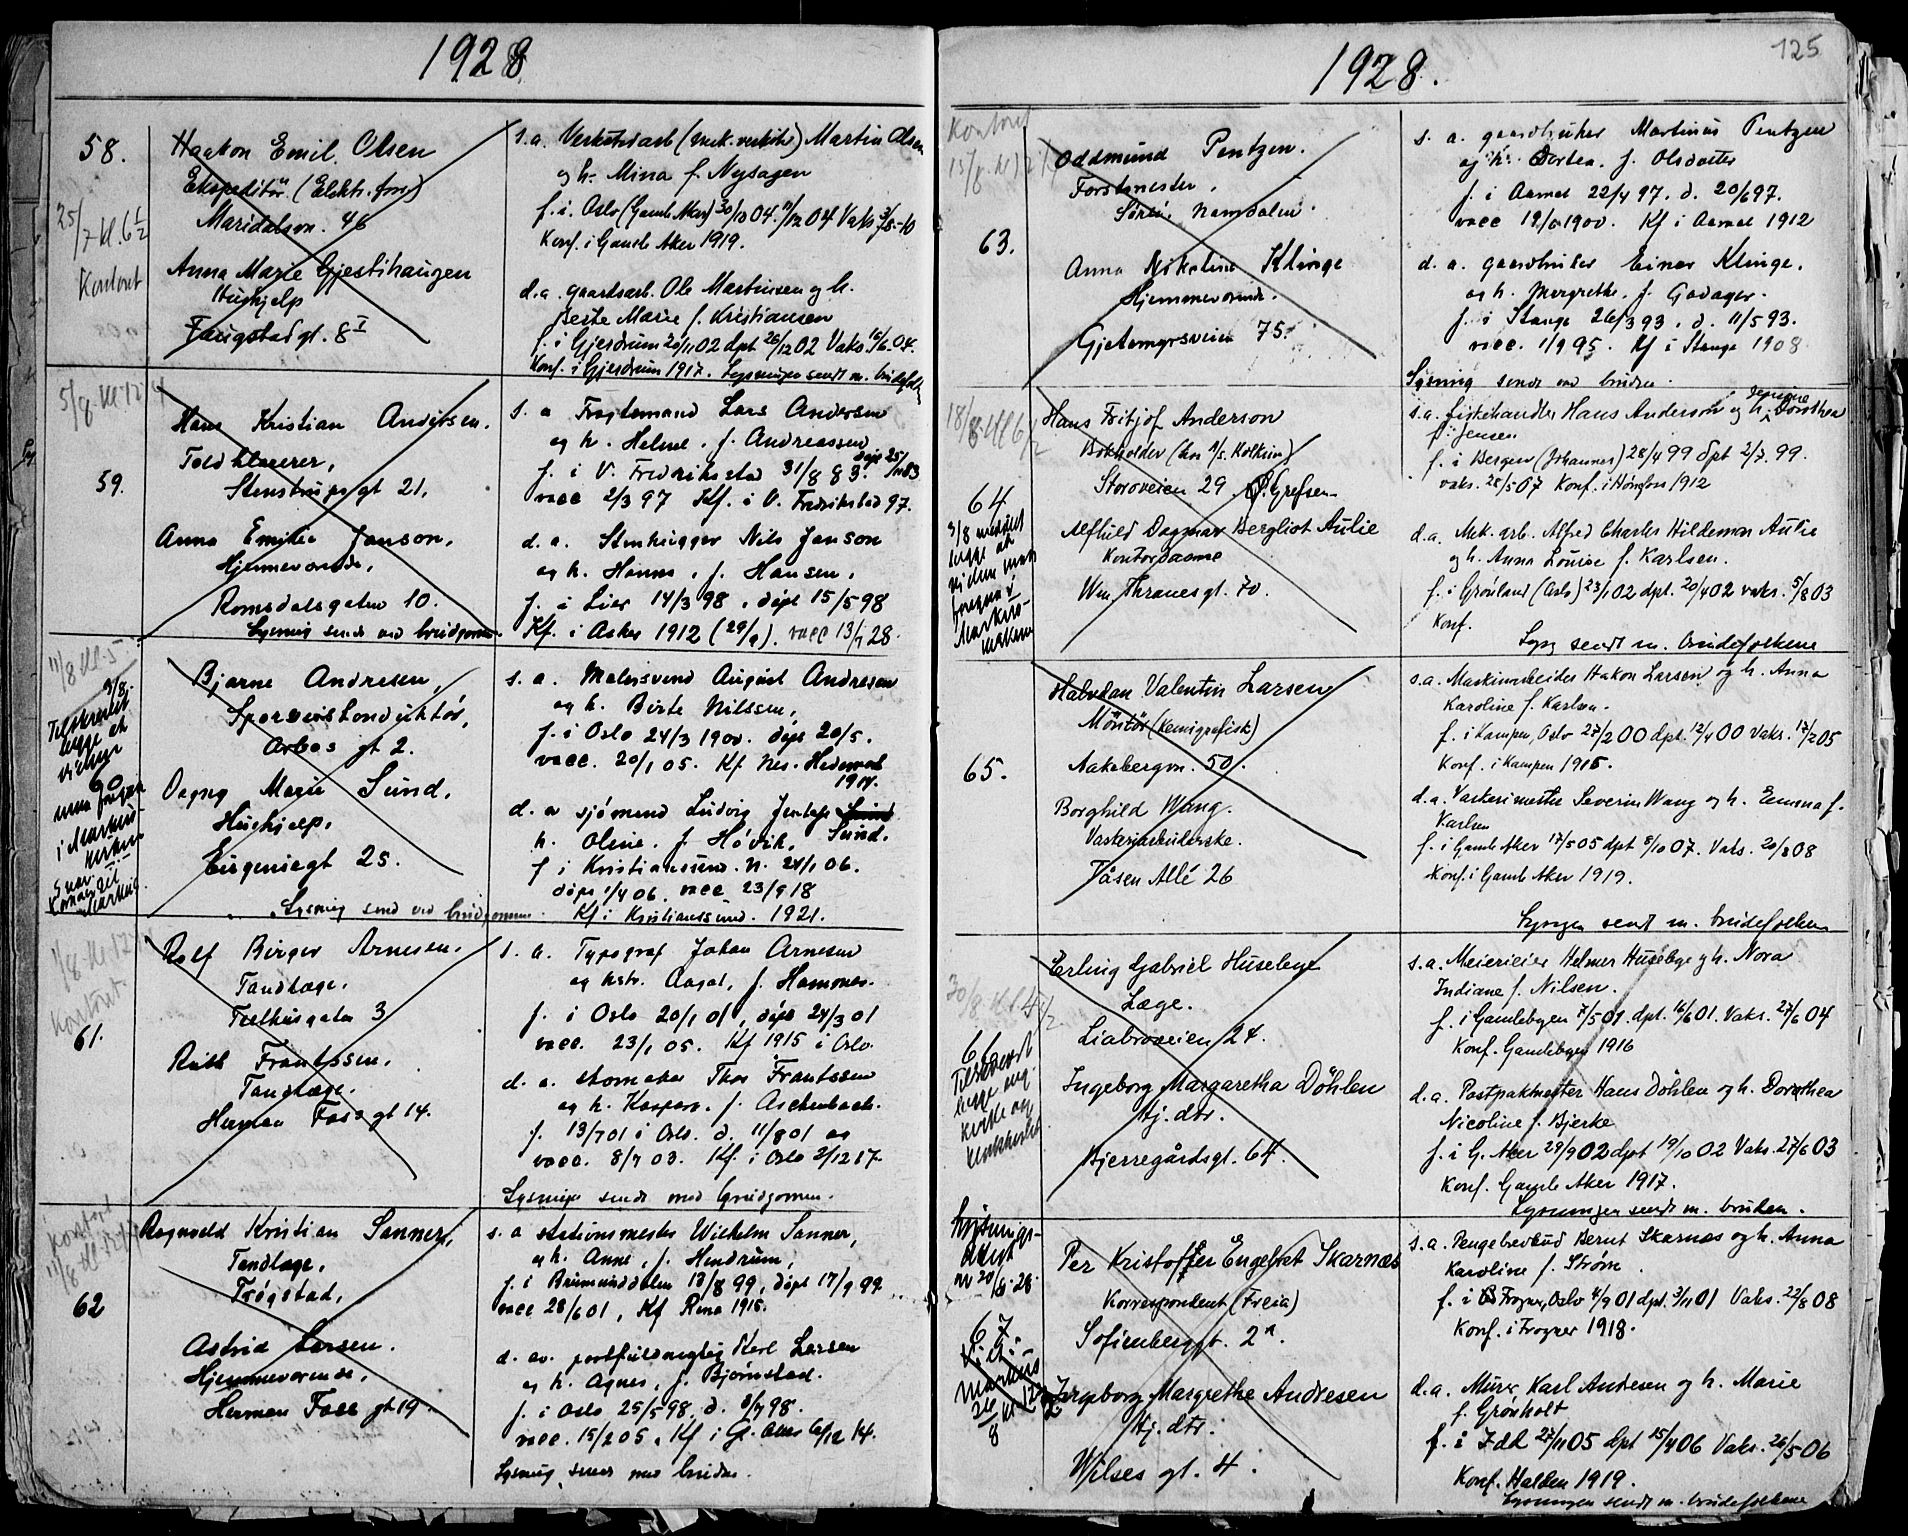 1928
58.
25/7 kl. 6 1/2
Kontoret
Haakon Emil Olsen
Ekspeditør (Elektr. forr.)
Maridalsvn. 46
Anna Marie Gjestihaugen
Hushjelp
Fougstadgt. 8 I
s. a. Verkstedarb (mek. verksted) Martin Olsen
og h. Mina f. Nysagen
f. i. Oslo (Gamle Aker) 30/10 04. 11/12 04 Vaks 3/5-10
Konf. i Gamle Aker 1919.
d.a. gaardsarb. Ole Martinsen og h.
Berte Marie f. Kristiansen
f. i Gjerdrum 20/11 02 dpt 26/12 02 Vaks 16/6-04.
Konf. i Gjerdrum 1917. Lysninger sendt m. brudefolk
5/8. kl 12
59.
Hans Kristian Andersen.
Toldklarerer,
Stenstrupsgt 21.
Anna Emilie Janson,
Hjemmevorende,
Romsdalsgaten 10.
Lysning sendt ved brudgommen.
s. a Fragtemand Lars Andersen
og h. Helene. f. Andreassen
f. i V. Fredrikstad 31/8 83. døpt 25/11 83
vacc 2/3 97 Kf. i V. Fredrikstad 97.
d. a. Stenhugger Nils Janson
og h. Hanna, f. Hansen,
f. i Lier 14/3 98, døpt 15/5 98
Kf. i Asker 1912 (29/9). vacc 13/7 28.
11/8 kl. 5
9/8.
Tilskrevet
begge at
vielsen
60
maa foregaa
i Markus-
kirken
Bjarne Andresen,
Sporveiskonduktør,
Arbos gt 2.
Dagny Marie Sund,
Hushjelp,
Eugeniegt 25.
Lysning send ved brudgommen.
s. a. Malersvend August Andresen
og h. Birte Nilssen,
f. i Oslo 24/3 1900. døpt 20/5.
vacc. 20/1 05. Kf Nes. Hedemark
1914.
d. a sjømand Ludvig Jentoft Sund
h. Oline. f. Høvik. Sund.
f i Kristianssund. N. 24/1 06.
døpt 1/4 06. vacc 23/9 18
Kf i Kristianssund. 1921.
11/8 kl 12
Kontoret
61.
Rolf Birger Arnesen.
Tandlæge.
Telthusgaten 3
Ruth Frantssen.
Tandlæge.
Herman Foss gt 14.
s. a. Typograf Johan Arnesen
og hstr. Aagot, f. Hammer.
f. i Oslo 20/1 01, døpt 24/3 01
vacc. 23/1 05. Kf 1915 i Oslo.
d. a. skomaker Thor Frantssen
og h. Kaspara. f. Aschenbach.
f. 13/7 01 i Oslo. d. 11/8 01 og
vacc. 8/7 03. Kf. i Oslo 2/12 17.
Lysninge sendt med brudgommen.
Kontoret
11/8 kl 12
62
Ragnvald Kristian Sanner,
Tandlæge,
Trøgstad,
Astrid Larsen.
Hjemmevorende,
Herman Foss gt 19.
s. a stationsmester Wilhelm Sanner,
og h. Anne, f. Hendrum,
f. i Brumunddalen 13/8 99, døpt 17/9 99
vacc 28/6 01, Kf Rena 1915.
d. av. postfuldmegtig Karl Larsen
og h. Agnes, f. Bjørnstad.
f. i Oslo 25/5 98, d. 3/7 98.
vacc. 15/2 05. Kf i Gl. Aker 6/12 14.
Lysning sendt med bruden.
125
1928.
Kontoret
15/8. kl 2
63.
Oddmund Pentzen.
Forstmester,
Sørli, Namdalen.
Anna Nikoline Klinge
Hjemmevorende.
Gjetemyrsveien 75.
s. a. gaardbruker Martinus Pentzen
og h. Dortea. f. Olsdatter
f. i Aarnes 22/4 97. d. 20/6 97.
vacc 19/6 1900. Kf i Aarnes 1912
d. a. gaardbruker Einar Klinge.
og h. Mergrethe. f. Godager.
f. i Stange 26/3 93. d. 11/5 93.
vacc. 1/9 95. Kf i Stange 1908.
Lysning sendt ved bruden.
18/8 kl 6 1/2
64
3/8 meddelt
begge at
vielsen maa
foregaa i
Markus-
kirken
Hans Fritjof Anderson
Bokholder (hos A/S. Kolkim)
Storoveien 29. P. Grefsen
Alfhild Dagmar Bergliot Aulie
Kontordame
Wm. Thranesgt. 70.
s.a. fiskehandler Hans Anderson og h. Jensine Dorothea
f. Jensen
f. i Bergen (Johannes) 28/4 99 dpt 2/7. 99.
vaks. 28/5 07 Konf. i Hønefoss 1912
d.a. Mek. arb. Alfred Charles Hildemar Aulie
og h. Anna Louise f. Karlsen.
f. i Grønland (Oslo) 23/1 02 dpt. 20/4 02 vaks. 5/8 03
Konf.
Lysg sendt m. brudefolkene
65.
Halvdan Valentin Larsen
Montør (kemigrafisk)
Aakebergvn. 50.
Borghild Wang.
Vaskeriarbeiderske.
Tåsen Allé 26
s.a. Maskinarbeider Hakon Larsen og h. Anna
Karoline f. Karlsen.
f. i Kampen, Oslo 27/2 00 dpt. 12/4 00 Vaks. 17/2 05
Konf. i Kampen 1915.
d.a. Vaskerimester Severin Wang og h. Emma f.
Karlsen
f. i Gamle Aker 17/5 05 dpt 8/10 07. Vaks. 20/8 08
Konf. i Gamle Aker 1919.
Lysngen sendt m. brudefolkene
30/8. kl. 5 1/2
66
Tilskrevet
begge ang.
kirke og
klokkeslett
Erling Gabriel Huseby
Læge.
Liabroveien 24.
Ingeborg Margaretha Döhlen
Hj. dtr.
Bjerregårdsgt. 64.
s.a. Meierieier Helmer Huseby og h. Nora
Indiane f. Nilsen.
f. i Gamlebyen 7/5 01. dpt. 16/6 01. Vaks. 27/6 04
Konf. Gamlebyen 1916
d.a. Postpakmester Hans Döhlen og h. Dorothea
Nicoline f. Bjerke
f. i G. Aker 29/9 02 dpt 19/10 02 Vaks. 27/6 03
Konf. Gamle Aker 1917.
Lysninger sendt m. bruden.
Lysnings-
attest
av 20/8-28.
67.
Viet i
Markus
26/8 kl 12
Per Kristoffer Engebret Skarnæs
Korrespondent (Freia)
Sofienberggt. 2 A.
Ingeborg Margrethe Andresen
Hj. dtr.
Wilses gt. 4.
s.a. Pengebrevbud Bernt Skarnæs og h. Anna
Karoline f. Strøm.
f. i Frogner, Oslo 4/9 01 dpt. 3/11 01 Vaks. 22/8 08
Konf. i Frogner 1918.
d.a. Murer Karl Andresen og h. Marie
f. Grönholt
f. i Idd 27/11 05 dpt 15/4 06 Vaks. 26/5 06
Konf. Halden 1919.
Lysningen sendt m. brudefolkene